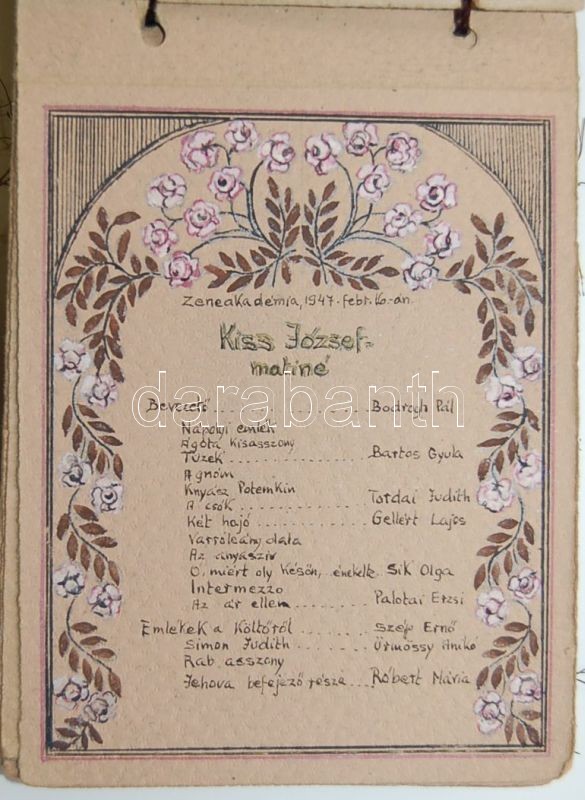 Zeneakadémia, 1947. febr. 16.-án.
Kiss József-
matiné
darabanth
Bevezető .......... Bodrogh Pál
Nápolyi emlék
Ágota kisasszony
Tüzek .......... Bartos Gyula
A gnóm
Knyáz Potemkin
A csók .......... Tordai Judith
Két hajó .......... Gellért Lajos
Varróleány dala
Az anyaszív
O, miért oly későn, énekelte Sik Olga
Intermezzo
Az ár ellen .......... Palotai Erzsi
Emlékek a Költőről ....... Szép Ernő
Simon Judith ....... Ürmössy Anikó
Rab asszony
Jehova befejező része .... Róbert Mária